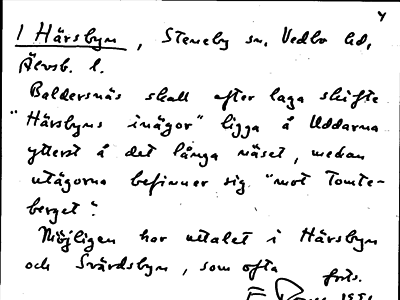 4
1 Härsbyn, Steneby sn, Vedbo hd,
Älvsb. l.
Baldersnäs skall efter laga skifte
"Härsbyns inägor" ligga å Uddarna
ytterst å det långa näset, medan
utägorna befinner sig "mot Tomte-
berget".
Möjligen har uttalet i Härsbyn
och Svärdsbyn, som ofta
forts.